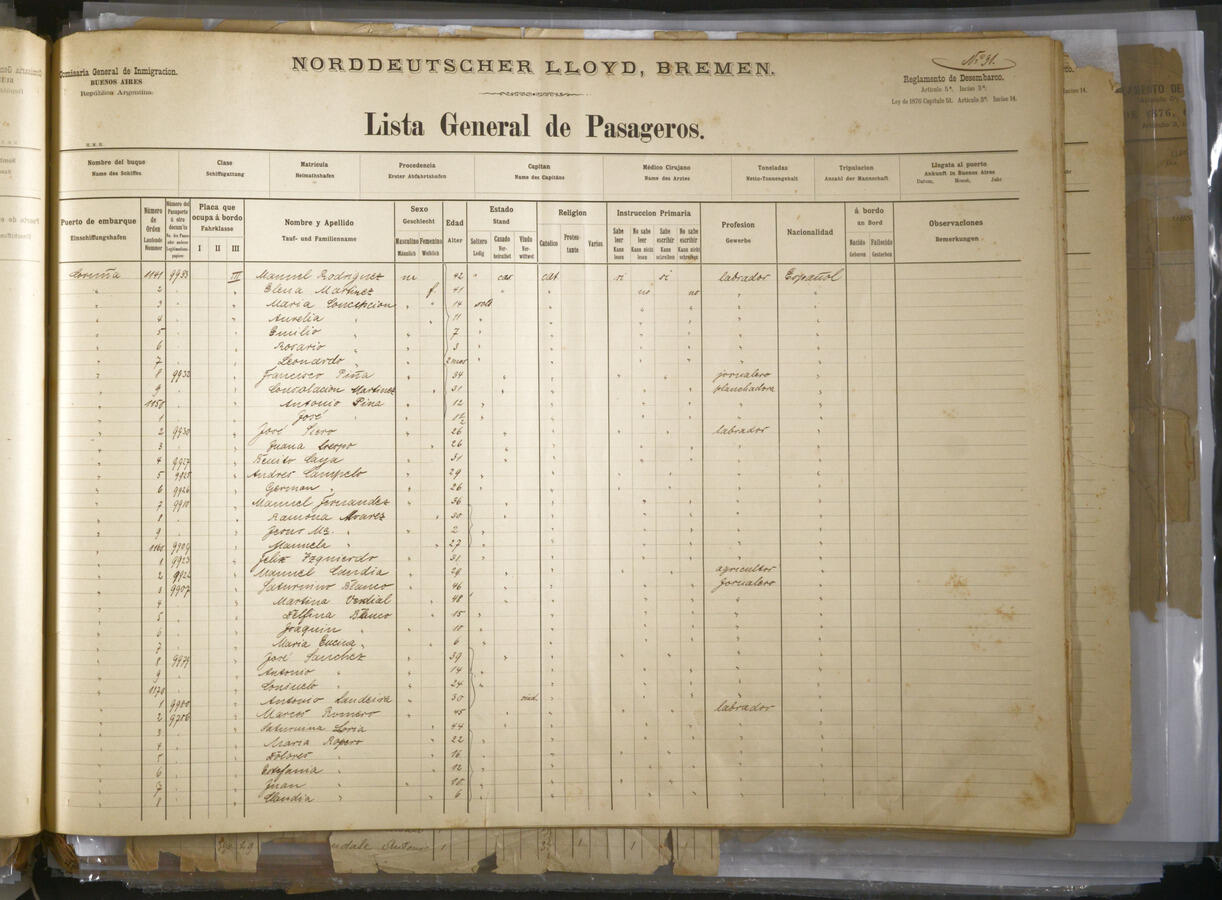 Comisaria General de Inmigracion.
BUENOS AIRES
República Argentina.
NORDDEUTSCHER LLOYD, BREMEN.
No 31.
Reglamento de Desembarco.
Articulo 5º. Inciso 3º.
Ley de 1876 Capitulo 51. Articulo 3º. Inciso 14.
Lista General de Pasageros.
Nombre del buque Clase Matricula Procedencia Capitan Médico Cirujano Toneladas Tripulacion Llegata al puerto
Name des Schiffes Schiffsgattung Heimathshafen Erster Abfahrtshafen Name des Capitäns Name des Arztes Netto-Tonnengehalt Anzahl der Mannschaft. Ankunft in Buenos Aires
Datum, Monat, Jahr
Puerto de embarque Número de Orden Número del Pasaporte ú otro Placa que ocupa á bordo Nombre y Apellido Sexo Edad Estado Religion Instruccion Primaria Profesion Nacionalidad á bordo Observaciones
Einschiffungshafen Laufende Nummer Fahrklasse Tauf- und Familienname Geschlecht Alter Stand Gewerbe an Bord Bemerkungen
I II III Masculino Femenino Soltero Casado Viudo Catolico Protestante Varios Sabe leer No sabe leer Sabe escribir No sabe escribir Nacido Fallecido
Männlich Weiblich Ledig Verheirathet Verwittwet Kann lesen Kann nicht lesen Kann schreiben Kann nicht schreiben Geboren Gestorben
Coruña 1141 9933 III Manuel Rodriguez m 42 " cas cat si si labrador Español
" 2 " Elena Martinez f 41 " " no no " "
" 3 " Maria Concepcion " " 14 solt " " " " "
" 4 " Aurelia " " 11 " " " " " "
" 5 " Emilio " " 7 " " " " " "
" 6 " Rosario " 3 " " " " " "
" 7 " Leonardo " " 2 mes " " " " " "
" 8 9932 " Francisco Piña " 34 " " " " jornalero "
" 9 " Consolacion Martinez " 31 " " " " planchadora "
" 1150 " Antonio Pina " 12 " " " " " "
" 1 " José " " " " " " "
" 2 9930 " José " 26 " " " " labrador "
" 3 " Juana " 26 " " " " " "
" 4 9927 " Benito " 31 " " " " " "
" 5 9925 " Andres Campelo " 29 " " " " " "
" 6 9926 " German " " 26 " " " " " "
" 7 9910 " Manuel Fernandez " 36 " " " " " "
" 8 " Ramona Alvarez " 30 " " " " " "
" 9 " " " 2 " " " " " "
" 1160 9909 " Manuela " " 27 " " " " " "
" 1 9923 " Felix Yzquierdo " 31 " " " " " "
" 2 9924 " Manuel Candia " 29 " " " " agricultor "
" 3 9907 " Saturnino Blanco " 46 " " " " jornalero "
" 4 " Martina " 48 " " " " " "
" 5 " Delfina Blanco " 15 " " " " " "
" 6 " Joaquin " " 10 " " " " " "
" 7 " Maria " " 6 " " " " " "
" 8 " José Sanchez " 39 " " " " " "
" 9 " Antonio " " 14 " " " " " "
" 1170 " Consuelo " " 24 " " " " " "
" 1 9900 " Antonio Landeira " 30 viud. " " " " "
" 2 9706 " Marcos Romero " 45 " " " " labrador "
" 3 " Saturnina " 44 " " " " " "
" 4 " Maria Romero " 22 " " " " " "
" 5 " Dolores " " 16 " " " " " "
" 6 " Estefania " " 12 " " " " " "
" 7 " Juan " " 10 " " " " " "
" 8 " Claudia " " 6 " " " " " "